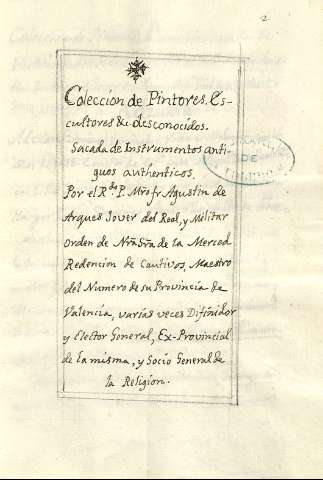 2
Coleccion de Pintores, Es-
cultores &c. desconocidos.
Sacada de Instrumentos anti-
guos authenticos.
Por el R.do P. Mro fr Agustin de
Arques Jover del Real, y Militar
Orden de Nra Sra de la Merced
Redencion de Cautivos, Maestro
del Numero de su Provincia de
Valencia, varias veces Difinidor
y Elector General, Ex-Provincial
de la misma, y Socio General de
la Religion.
DE